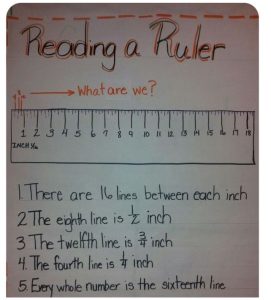 Reading a Ruler
What are we?
1 2 3 4 5 6 7 8 9 10 11 12 13 14 15 16 17 18
INCH 1/16
1. There are 16 lines between each inch
2 The eighth line is 1/2 inch
3 The twelfth line is 3/4 inch
4. The fourth line is 1/4 inch
5. Every whole number is the sixteenth line